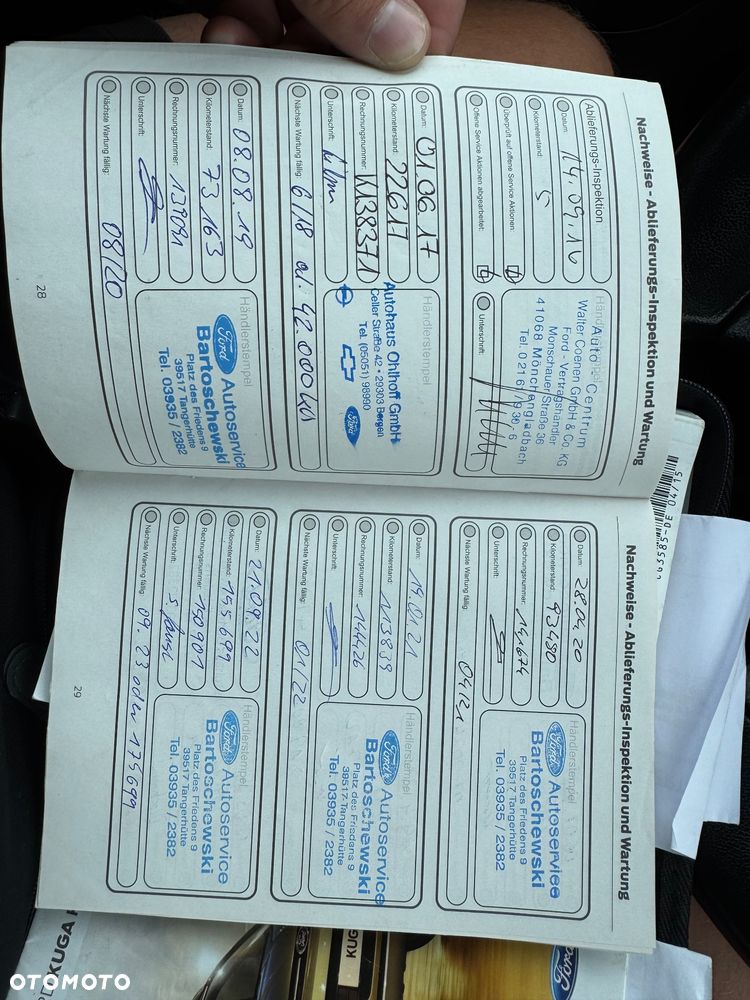 Nachweise - Ablieferungs-Inspektion und Wartung
Ablieferungs-Inspektion
Datum: 14.09.16
Kilometerstand: 5
Überprüft auf offene Service Aktionen:
Offene Service Aktionen abgearbeitet:
Händlerstempel
Auto Centrum
Walter Coenen GmbH & Co. KG
Ford - Vertragshändler
Monschauer Straße 36
41068 Mönchengladbach
Unterschrift:
Datum: 01.06.17
Kilometerstand: 22617
Rechnungsnummer: W38371
Unterschrift:
Nächste Wartung fällig: 6/18 od. 42.000
Händlerstempel
Autohaus Ohlhoff GmbH
Celler Straße 42 • 29303 Bergen
Tel. (05051) 98990
Ford
Datum: 08.08.19
Kilometerstand: 73163
Rechnungsnummer: 139091
Unterschrift:
Nächste Wartung fällig: 08/20
Händlerstempel
Ford Autoservice
Bartoschewski
Platz des Friedens 9
39517 Tangerhütte
Tel. 03935 / 2382
28
Nachweise - Ablieferungs-Inspektion und Wartung
Datum: 28.04.20
Kilometerstand: 93480
Rechnungsnummer: 141674
Unterschrift:
Nächste Wartung fällig: 04/21
Händlerstempel
Ford Autoservice
Bartoschewski
Platz des Friedens 9
39517 Tangerhütte
Tel. 03935 / 2382
Datum: 19.01.21
Kilometerstand: 113839
Rechnungsnummer: 144426
Unterschrift:
Nächste Wartung fällig: 01/22
Händlerstempel
Ford Autoservice
Bartoschewski
Platz des Friedens 9
39517 Tangerhütte
Tel. 03935 / 2382
Datum: 21.09.22
Kilometerstand: 155699
Rechnungsnummer: 150901
Unterschrift:
Nächste Wartung fällig: 09.23 oder 175699
Händlerstempel
Ford Autoservice
Bartoschewski
Platz des Friedens 9
39517 Tangerhütte
Tel. 03935 / 2382
29
KUGA
KUGA
Ford
OTOMOTO